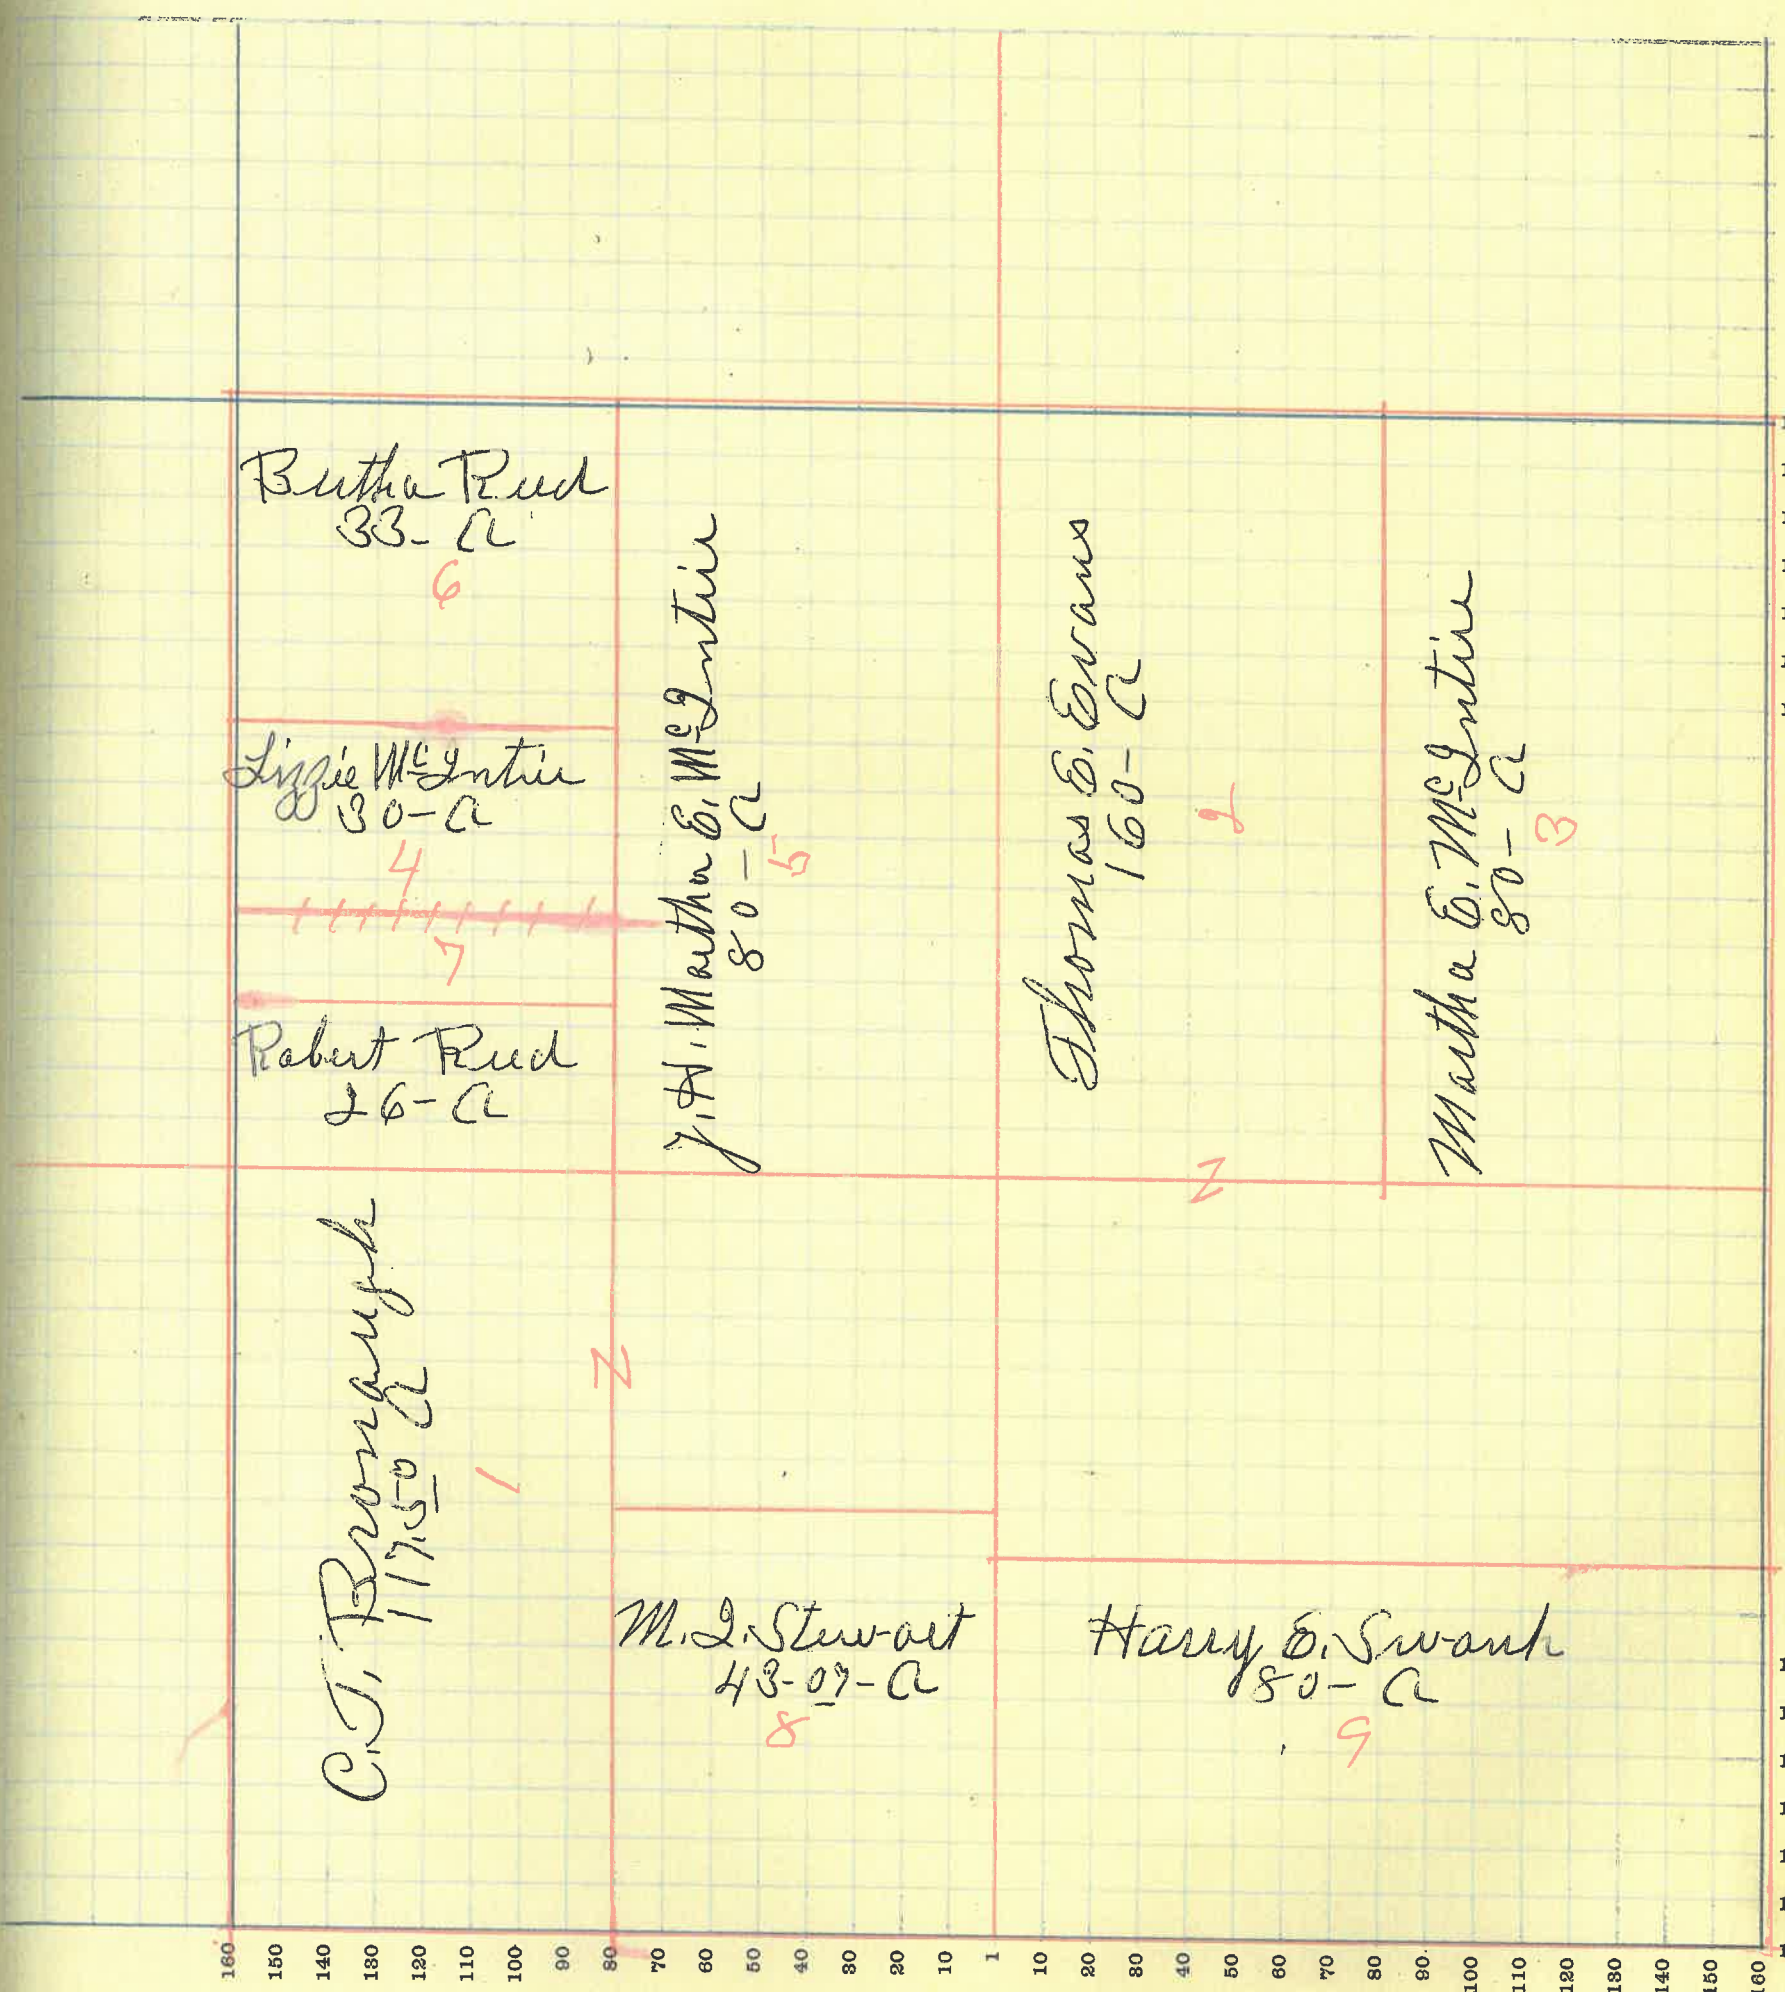 Bertha Reed
33- A
6
Lizzie McIntire
30- A
4
7
Robert Reed
26- A
J. H. Martha E. McIntire
80- A
5
Thomas E. Evans
160- A
2
Martha E. McIntire
80- A
3
Z
C. T. Bronaugh
117.50 A
1
Z
M. I. Stewart
43-07- A
8
Harry E. Swank
80- A
9
160 150 140 130 120 110 100 90 80 70 60 50 40 30 20 10 1 10 20 30 40 50 60 70 80 90 100 110 120 130 140 150 160